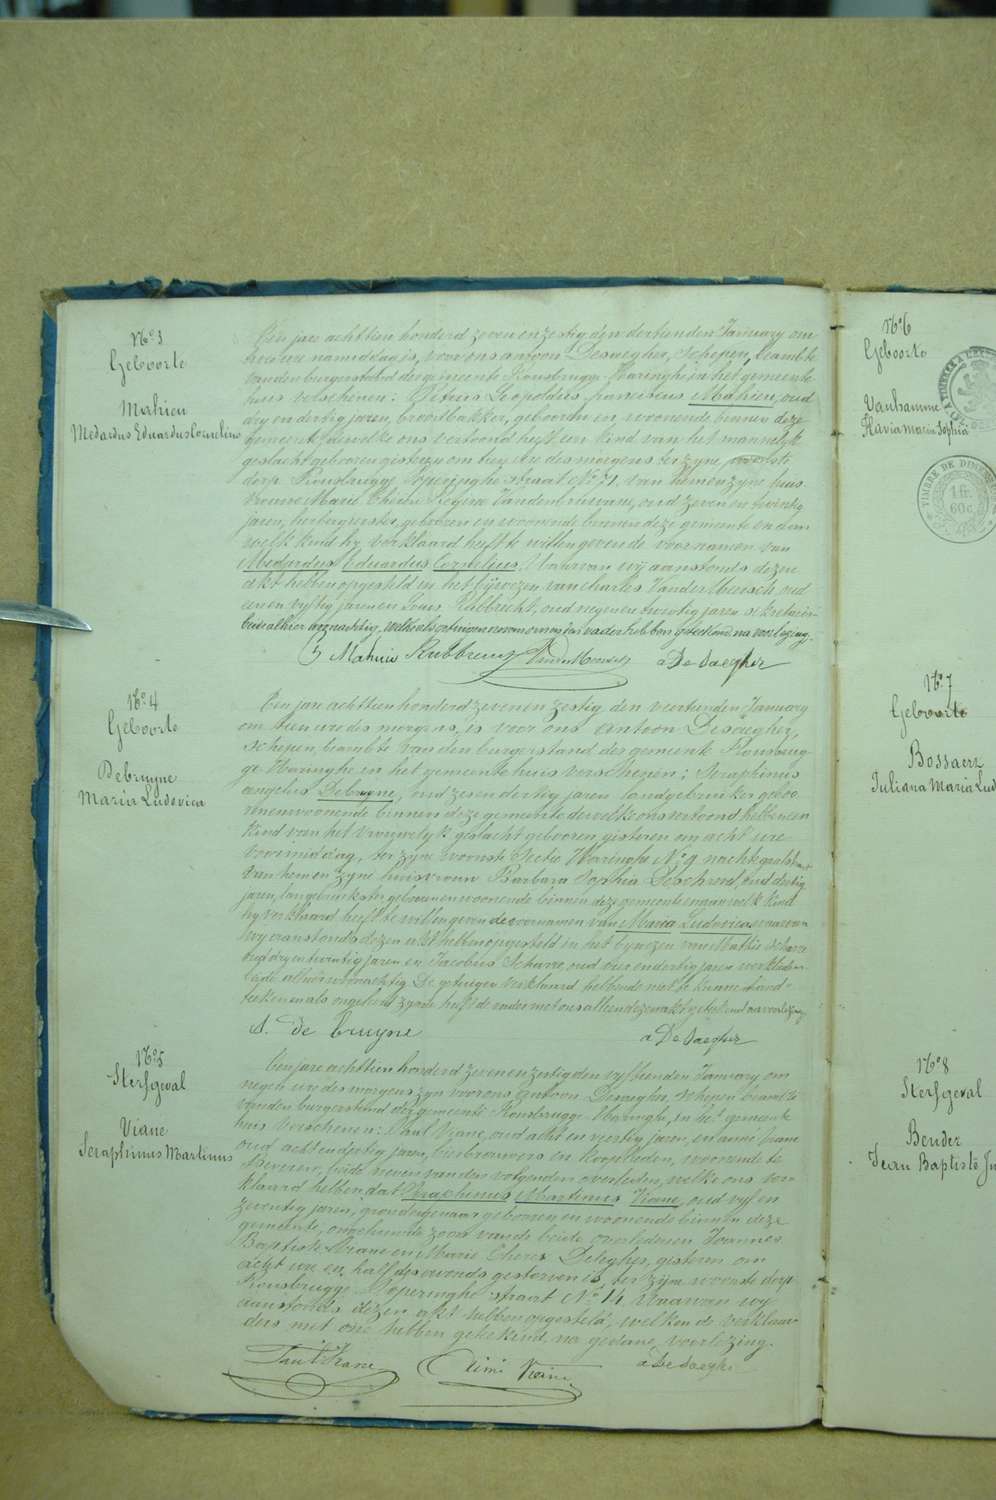 No 3
Geboorte
Mahieu
Medardus Eduardus Cornelius
Een jare achttien honderd zeven en zestig den dertienden January om
twee ure namiddag is, voor ons antoon Desaegher, schepen, beambte
van den burgerstand der gemeente Rousbrugge Haringhe in het gemeente
huis verschenen: Petrus Leopoldus franciscus Mahieu, oud
dry en dertig jaren, broodbakker, geboortig en woonende binnen deze
gemeente, dewelke ons vertoond heeft een kind van het mannelyk
geslacht gebooren gisteren om tien ure des morgens ter zyne woonste
dorp Rousbrugge Poperinghe straat No 71, van hem en zyne huis
vrouw Marie Therese Regina Vandenbroucke, oud zeven en twintig
jaren, herbergierster, gebooren en woonende binnen deze gemeente en aan
welk kind hy verklaard heeft te willen geven de voornamen van
Medardus Eduardus Cornelius. Waarvan wy aanstonds dezen
akt hebben opgesteld in het bywezen van charles Vandermeersch, oud
en vyftig jaren en Louis Rubbrecht, oud negen en twintig jaren sekretaris
beide alhier woonachtig, welke als getuigen nevens ons en den vader hebben geteekend na voorlezing.
Mahieu Rubbrecht Vandermeersch a De Saegher
No 4
Geboorte
Debruyne
Maria Ludovica
Een jare achttien honderd zeven en zestig den veertienden January
om tien ure des morgens, is voor ons Antoon Desaegher,
schepen, beambte van den burgerstand des gemeente Rousbrug
ge Haringhe in het gemeentehuis verschenen; Seraphinus
angelus Debruyne, oud zes en dertig jaren landgebruiker geboo
ren en woonende binnen deze gemeente dewelke ons vertoond heeft een
kind van het vrouwelyk geslacht gebooren gisteren om acht ure
voormiddag, ter zyne woonste Sectie Haringhe No 9 nachtegaalstraat
van hem en zyne huisvrouw Barbara Sophia oud dertig
jaren, landgebruikster gebooren en woonende binnen deze gemeente en aan welk kind
hy verklaard heeft te willen geven de voornamen van Maria Ludovica waarvan
wy aanstonds dezen akt hebben opgesteld in het bywezen van Mathis Scharre
oud dry en twintig jaren en Jacobus Scharre, oud vier en dertig jaren werklieden
beide alhier woonachtig De getuigen verklaard hebbende niet te kunnen hand-
teekenen als ongeleerd zynde heeft de vader met ons alleen dezen akt geteekend na voorlezing
S. de bruyne a De Saegher
No 5
Sterfgeval
Viane
Seraphinus Martinus
Een jare achttien honderd zeven en zestig den vyftienden January om
negen ure des morgens zyn voor ons Antoon Desaegher, schepen beambte
van den burgerstand der gemeente Rousbrugge Haringhe, in het gemeente
huis verschenen: Paul Viane, oud acht en veertig jaren, en Viane
oud acht en dertig jaren, bierbrouwers en kooplieden, woonende te
Beveren, beide neven van den volgenden overleden, welke ons ver-
klaard hebben, dat Seraphinus Martinus Viane, oud vyf en
zeventig jaren, grondeigenaar gebooren en woonende binnen deze
gemeente, ongehuwde zoon van de beide overledenen Joannes
Baptiste Viane en Marie Therese gisteren om
acht ure en half des avonds gestorven is, ter zyne woonste dorp
Rousbrugge Poperinghe straat No 14. Waarvan wy
aanstonds dezen akt hebben opgesteld, welken de verklaar-
ders met ons hebben geteekend na gedane voorlezing.
Paul Viane Viane a De Saegher
No 6
Geboorte
Vanhamme
Flavia Maria Sophia
TIMBRE DE DIMENS
1 fr.
60 c.
No 7
Geboorte
Bossaert
Juliana Maria Lud
No 8
Sterfgeval
Bender
Jean Baptiste Ju